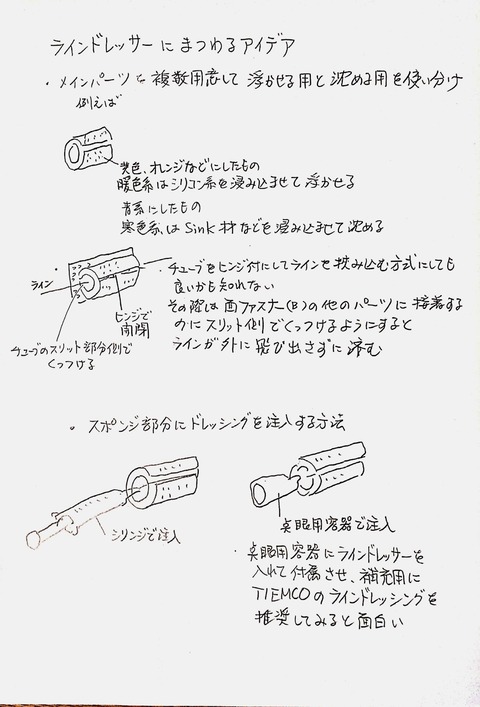 ラインドレッサーにまつわるアイデア
・メインパーツを複数用意して浮かせる用と沈める用を使い分け
例えば
黄色、オレンジなどにしたもの
暖色系はシリコン系を浸み込ませて浮かせる
青系にしたもの
寒色系はSink材などを浸み込ませて沈める
ライン
ヒンジで
開閉
チューブのスリット部分側で
くっつける
・チューブをヒンジ付にしてラインを挟み込む方式にしても
良いかも知れない
その際は面ファスナー(B)の他のパーツに接着する
のにスリット側でくっつけるようにすると
ラインが外に飛び出さずに済む
・スポンジ部分にドレッシングを注入する方法
シリンジで注入
点眼用容器で注入
・点眼用容器にラインドレッサーを
入れて付属させ、補充用に
TIEMCOのラインドレッシングを
推奨してみると面白い